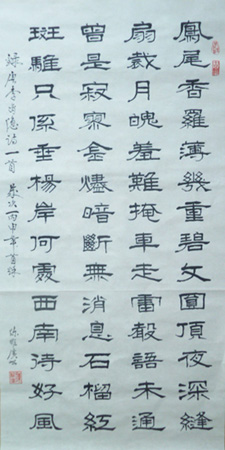 鳳尾香羅薄幾重碧文圓頂夜深縫
扇裁月魄羞難掩車走雷聲語未通
曾是寂寥金燼暗斷無消息石榴紅
斑騅只係垂楊岸何處西南待好風
録唐李商隱詩一首 歲次丙申年